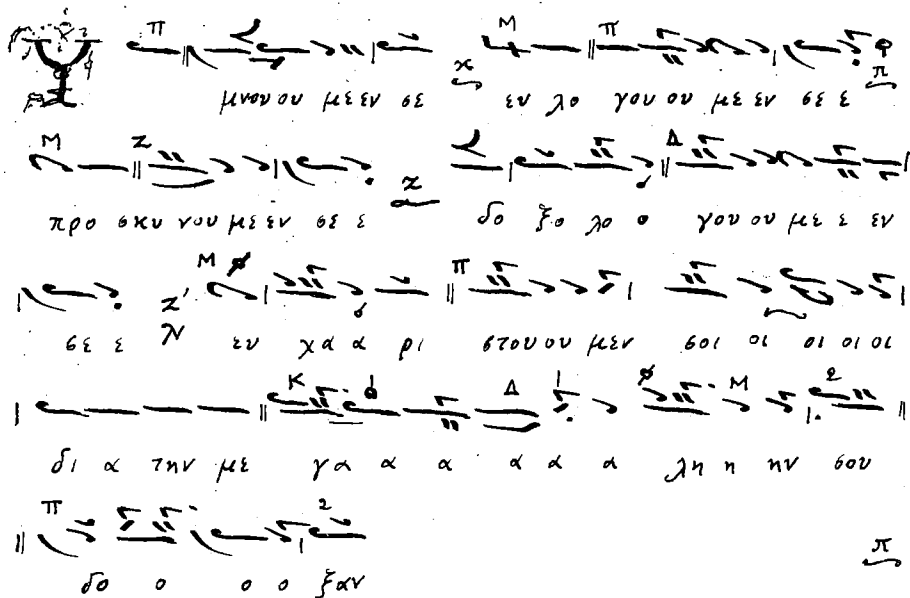 μνου ου με εν σε ευ λο γου ου με εν σε ε
προ σκυ νου με εν σε ε δο ξο λο ο γου ου με ε εν
σε ε ευ χα α ρι στου ου μεν σοι οι οι οι οι
δι α την με γα α α α α α λη η ην σου
δο ο ο ο ξαν